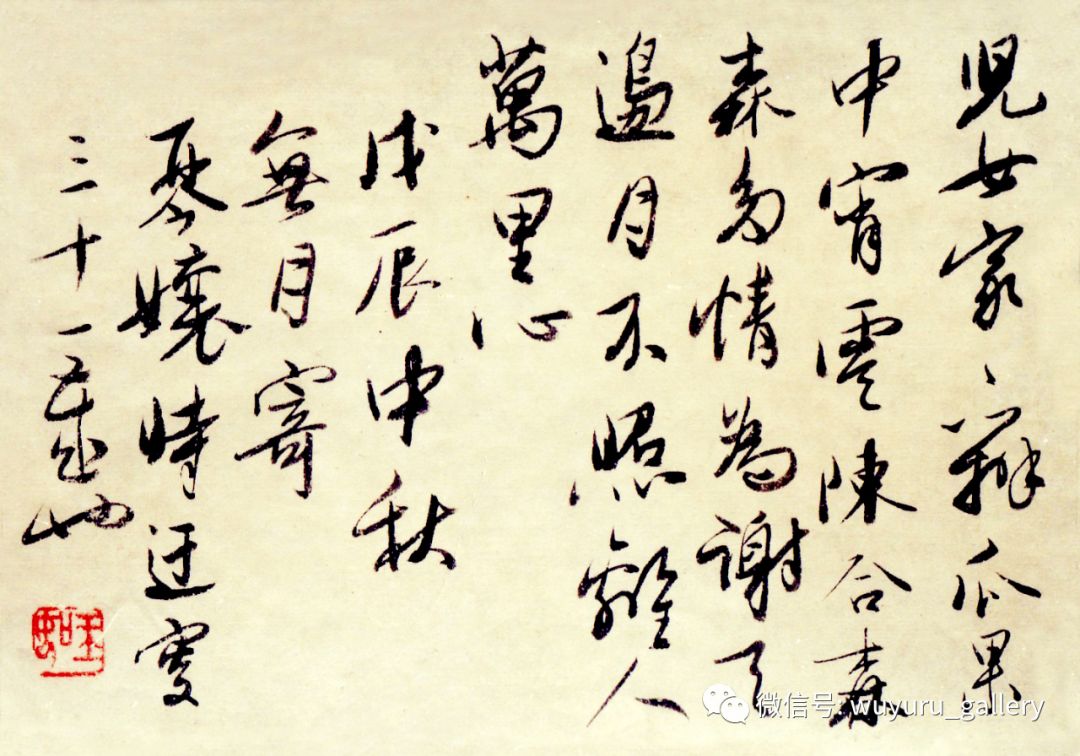 兒女家、辦瓜果
中宵雲陳合森
森多情為謝天
邊月不照離人
萬里心
戊辰中秋
無月寄
琴孃時迂叟
三十一歲也
微信号: wuyuru_gallery